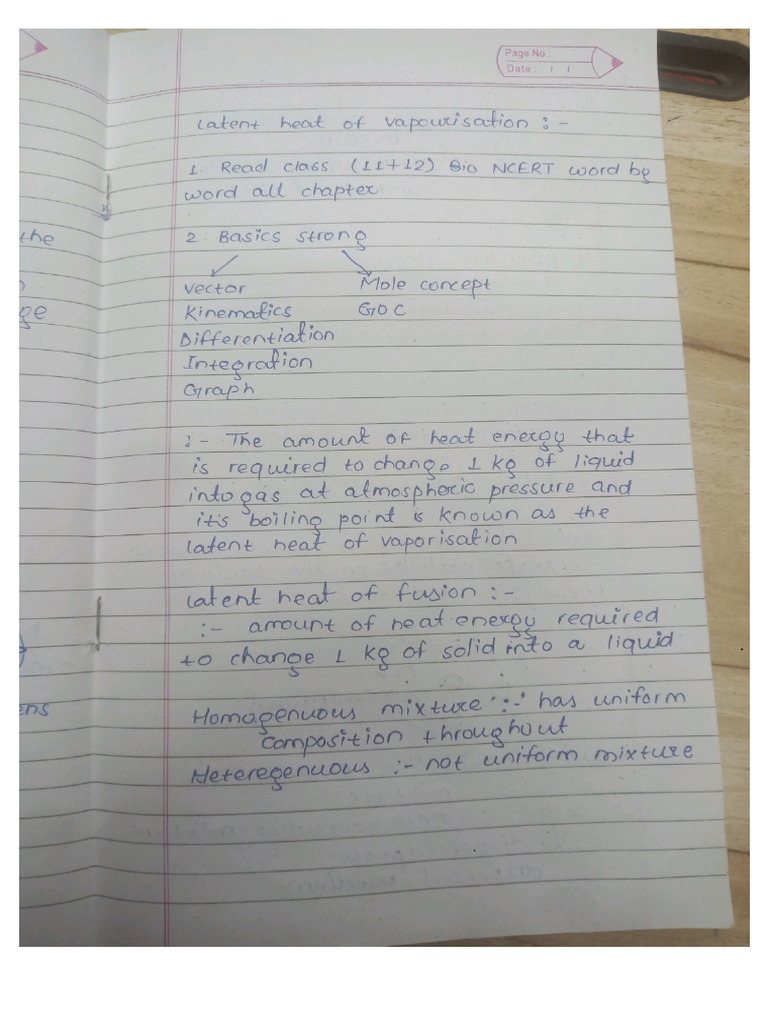 Page No.:
Date : / /
Latent heat of vapourisation :-
1. Read class (11+12) Bio NCERT word by
word all chapter
2. Basics strong
Vector Mole concept
Kinematics GOC
Differentiation
Integration
Graph
:- The amount of heat energy that
is required to change 1 kg of liquid
into gas at atmospheric pressure and
it's boiling point is known as the
latent heat of vaporisation
Latent heat of fusion :-
:- amount of heat energy required
to change 1 kg of solid into a liquid
Homogenuous mixture :- has uniform
composition throughout
Heteregenuous :- not uniform mixture
the
ge
ens